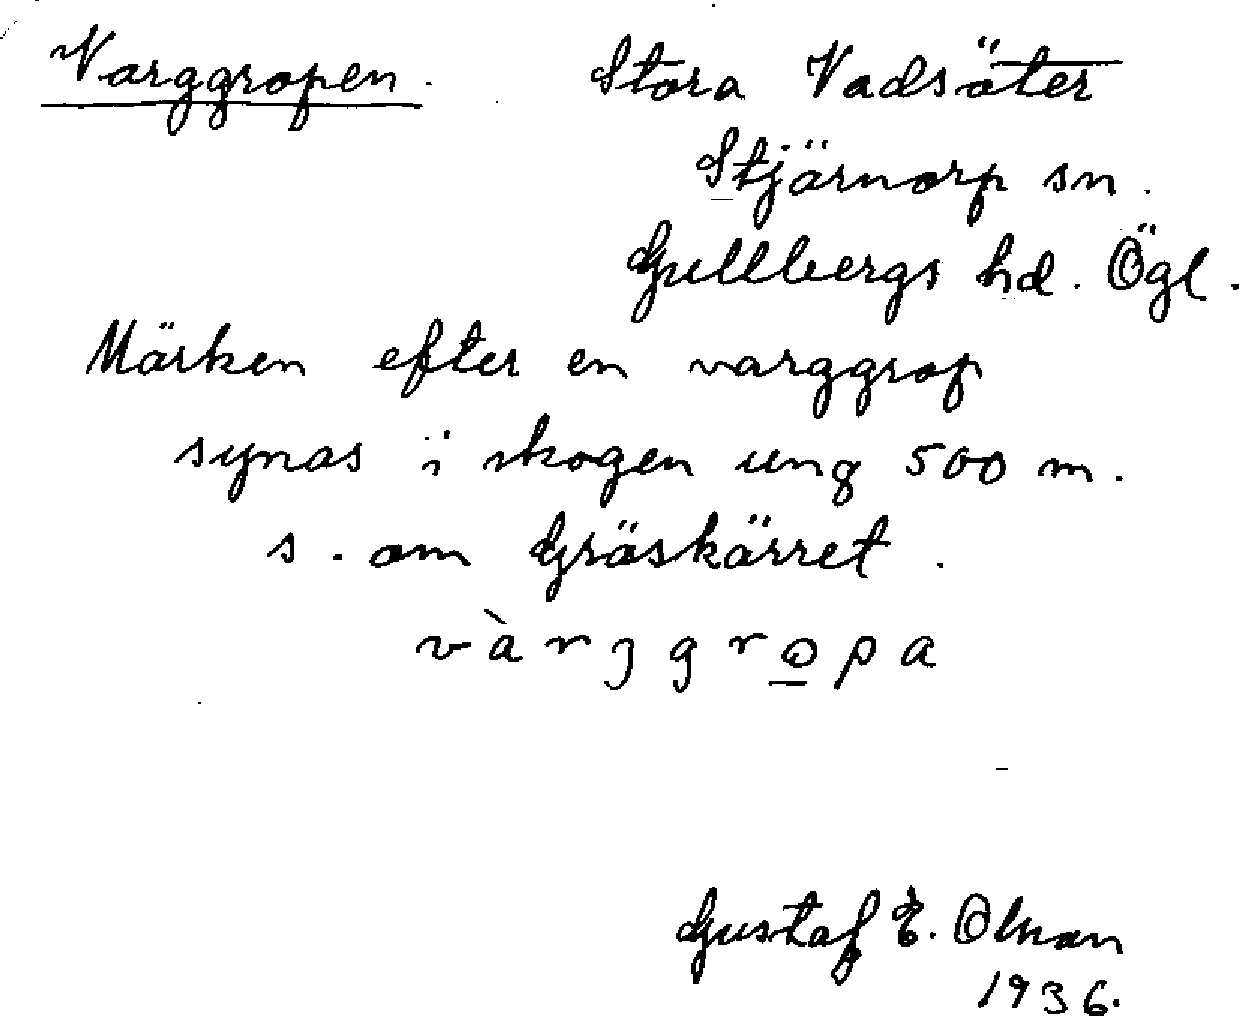 Varggropen. Stora Vadsäter
Stjärnorp sn.
Gullbergs hd. Ögl.
Märken efter en varggrop
synas i skogen ung 500 m.
s. om Gräskärret.
vàrjgro̲pa
Gustaf E. Olsson
1936.